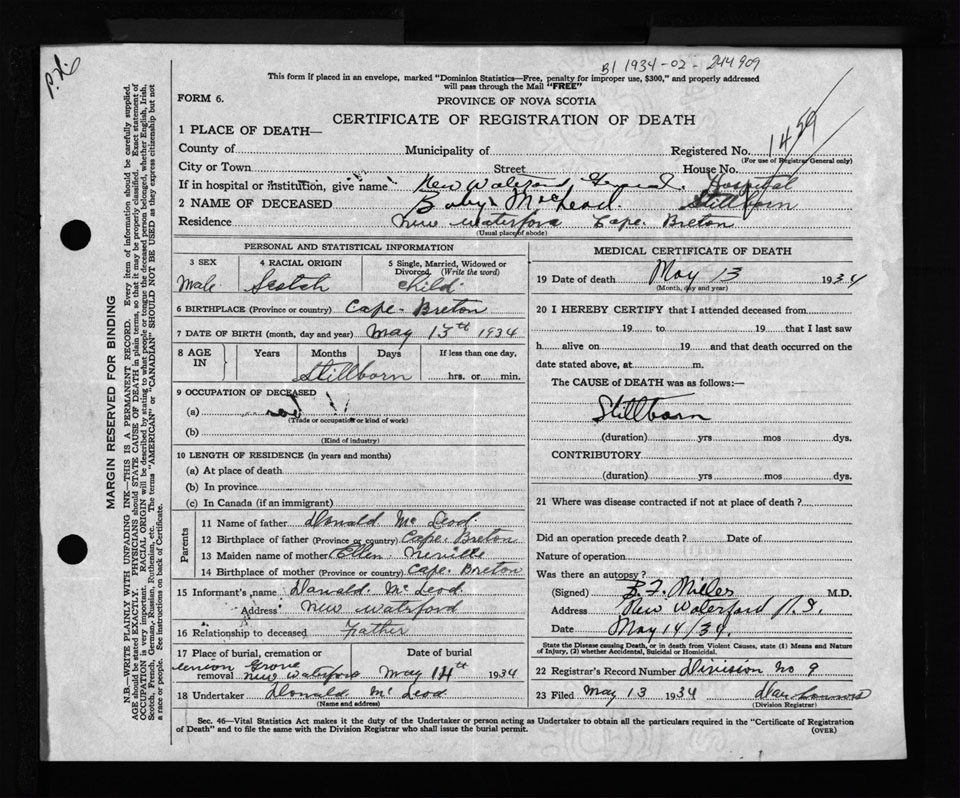 B1 1934-02-244909
This form if placed in an envelope, marked "Dominion Statistics—Free, penalty for improper use, $300," and properly addressed
will pass through the Mail "FREE"
FORM 6.
PROVINCE OF NOVA SCOTIA
CERTIFICATE OF REGISTRATION OF DEATH
1 PLACE OF DEATH—
County of Municipality of Registered No. 1429
(For use of Registrar General only)
City or Town Street House No.
If in hospital or institution, give name New Waterford General Hospital
2 NAME OF DECEASED Baby McLeod Stillborn
Residence New Waterford Cape Breton
(Usual place of abode)
PERSONAL AND STATISTICAL INFORMATION
3 SEX
Male
4 RACIAL ORIGIN
Scotch
5 Single, Married, Widowed or
Divorced (Write the word)
Child
6 BIRTHPLACE (Province or country) Cape Breton
7 DATE OF BIRTH (month, day and year) May 13th 1934
8 AGE IN
Years Months Days If less than one day,
Stillborn hrs. or min.
9 OCCUPATION OF DECEASED
(a)
(Trade or occupation or kind of work)
(b)
(Kind of industry)
10 LENGTH OF RESIDENCE (in years and months)
(a) At place of death
(b) In province
(c) In Canada (if an immigrant)
Parents
11 Name of father Donald Mc Leod
12 Birthplace of father (Province or country) Cape Breton
13 Maiden name of mother Ellen Neville
14 Birthplace of mother (Province or country) Cape Breton
15 Informant's name Donald Mc Leod
Address New Waterford
16 Relationship to deceased Father
17 Place of burial, cremation or
removal Union Grove
New Waterford
Date of burial
May 14th 1934
18 Undertaker Donald Mc Leod
(Name and address)
MEDICAL CERTIFICATE OF DEATH
19 Date of death May 13 1934
(Month, day and year)
20 I HEREBY CERTIFY that I attended deceased from
19 to 19 that I last saw
h alive on 19 and that death occurred on the
date stated above, at m.
The CAUSE of DEATH was as follows:—
Stillborn
(duration) yrs mos dys.
CONTRIBUTORY
(duration) yrs mos dys.
21 Where was disease contracted if not at place of death?
Did an operation precede death? Date of
Nature of operation
Was there an autopsy?
(Signed) B. F. Miller M.D.
Address New Waterford N.S.
Date May 14/34.
State the Disease causing Death, or in death from Violent Causes, state (1) Means and Nature
of Injury, (2) whether Accidental, Suicidal or Homicidal.
22 Registrar's Record Number Division No 9
23 Filed May 13 1934
(Division Registrar)
Sec. 46—Vital Statistics Act makes it the duty of the Undertaker or person acting as Undertaker to obtain all the particulars required in the "Certificate of Registration
of Death" and to file the same with the Division Registrar who shall issue the burial permit.
(OVER)
MARGIN RESERVED FOR BINDING
N.B.—WRITE PLAINLY WITH UNFADING INK—THIS IS A PERMANENT RECORD. Every item of information should be carefully supplied.
AGE should be stated EXACTLY. PHYSICIANS should STATE CAUSE OF DEATH in plain terms, so that it may be properly classified. Exact statement of
OCCUPATION is very important. RACIAL ORIGIN will be described by stating to what people or tongue the deceased person belonged, whether English, Irish,
Scotch, French, German, Russian, Ruthenian, etc. The terms "AMERICAN" or "CANADIAN" SHOULD NOT BE USED as they express citizenship but not
a race or people. See instructions on back of Certificate.